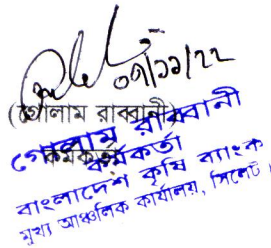 ০৭/১১/২২
(গোলাম রাব্বানী)
কর্মকর্তা
গোলাম রাব্বানী
কর্মকর্তা
বাংলাদেশ কৃষি ব্যাংক
মুখ্য আঞ্চলিক কার্যালয়, সিলেট।